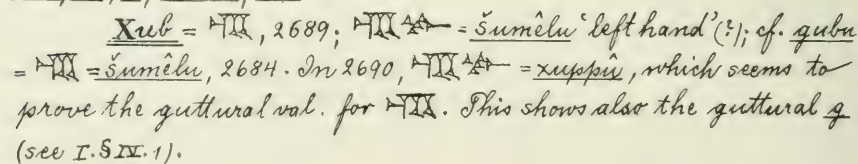 Xub = 𒃸, 2689; = šumêlu ‘left hand’(?); cf. gubu
= = šumêlu, 2684. In 2690, = xuppû, which seems to
prove the guttural val. for . This shows also the guttural g
(see I. § IV. 1).